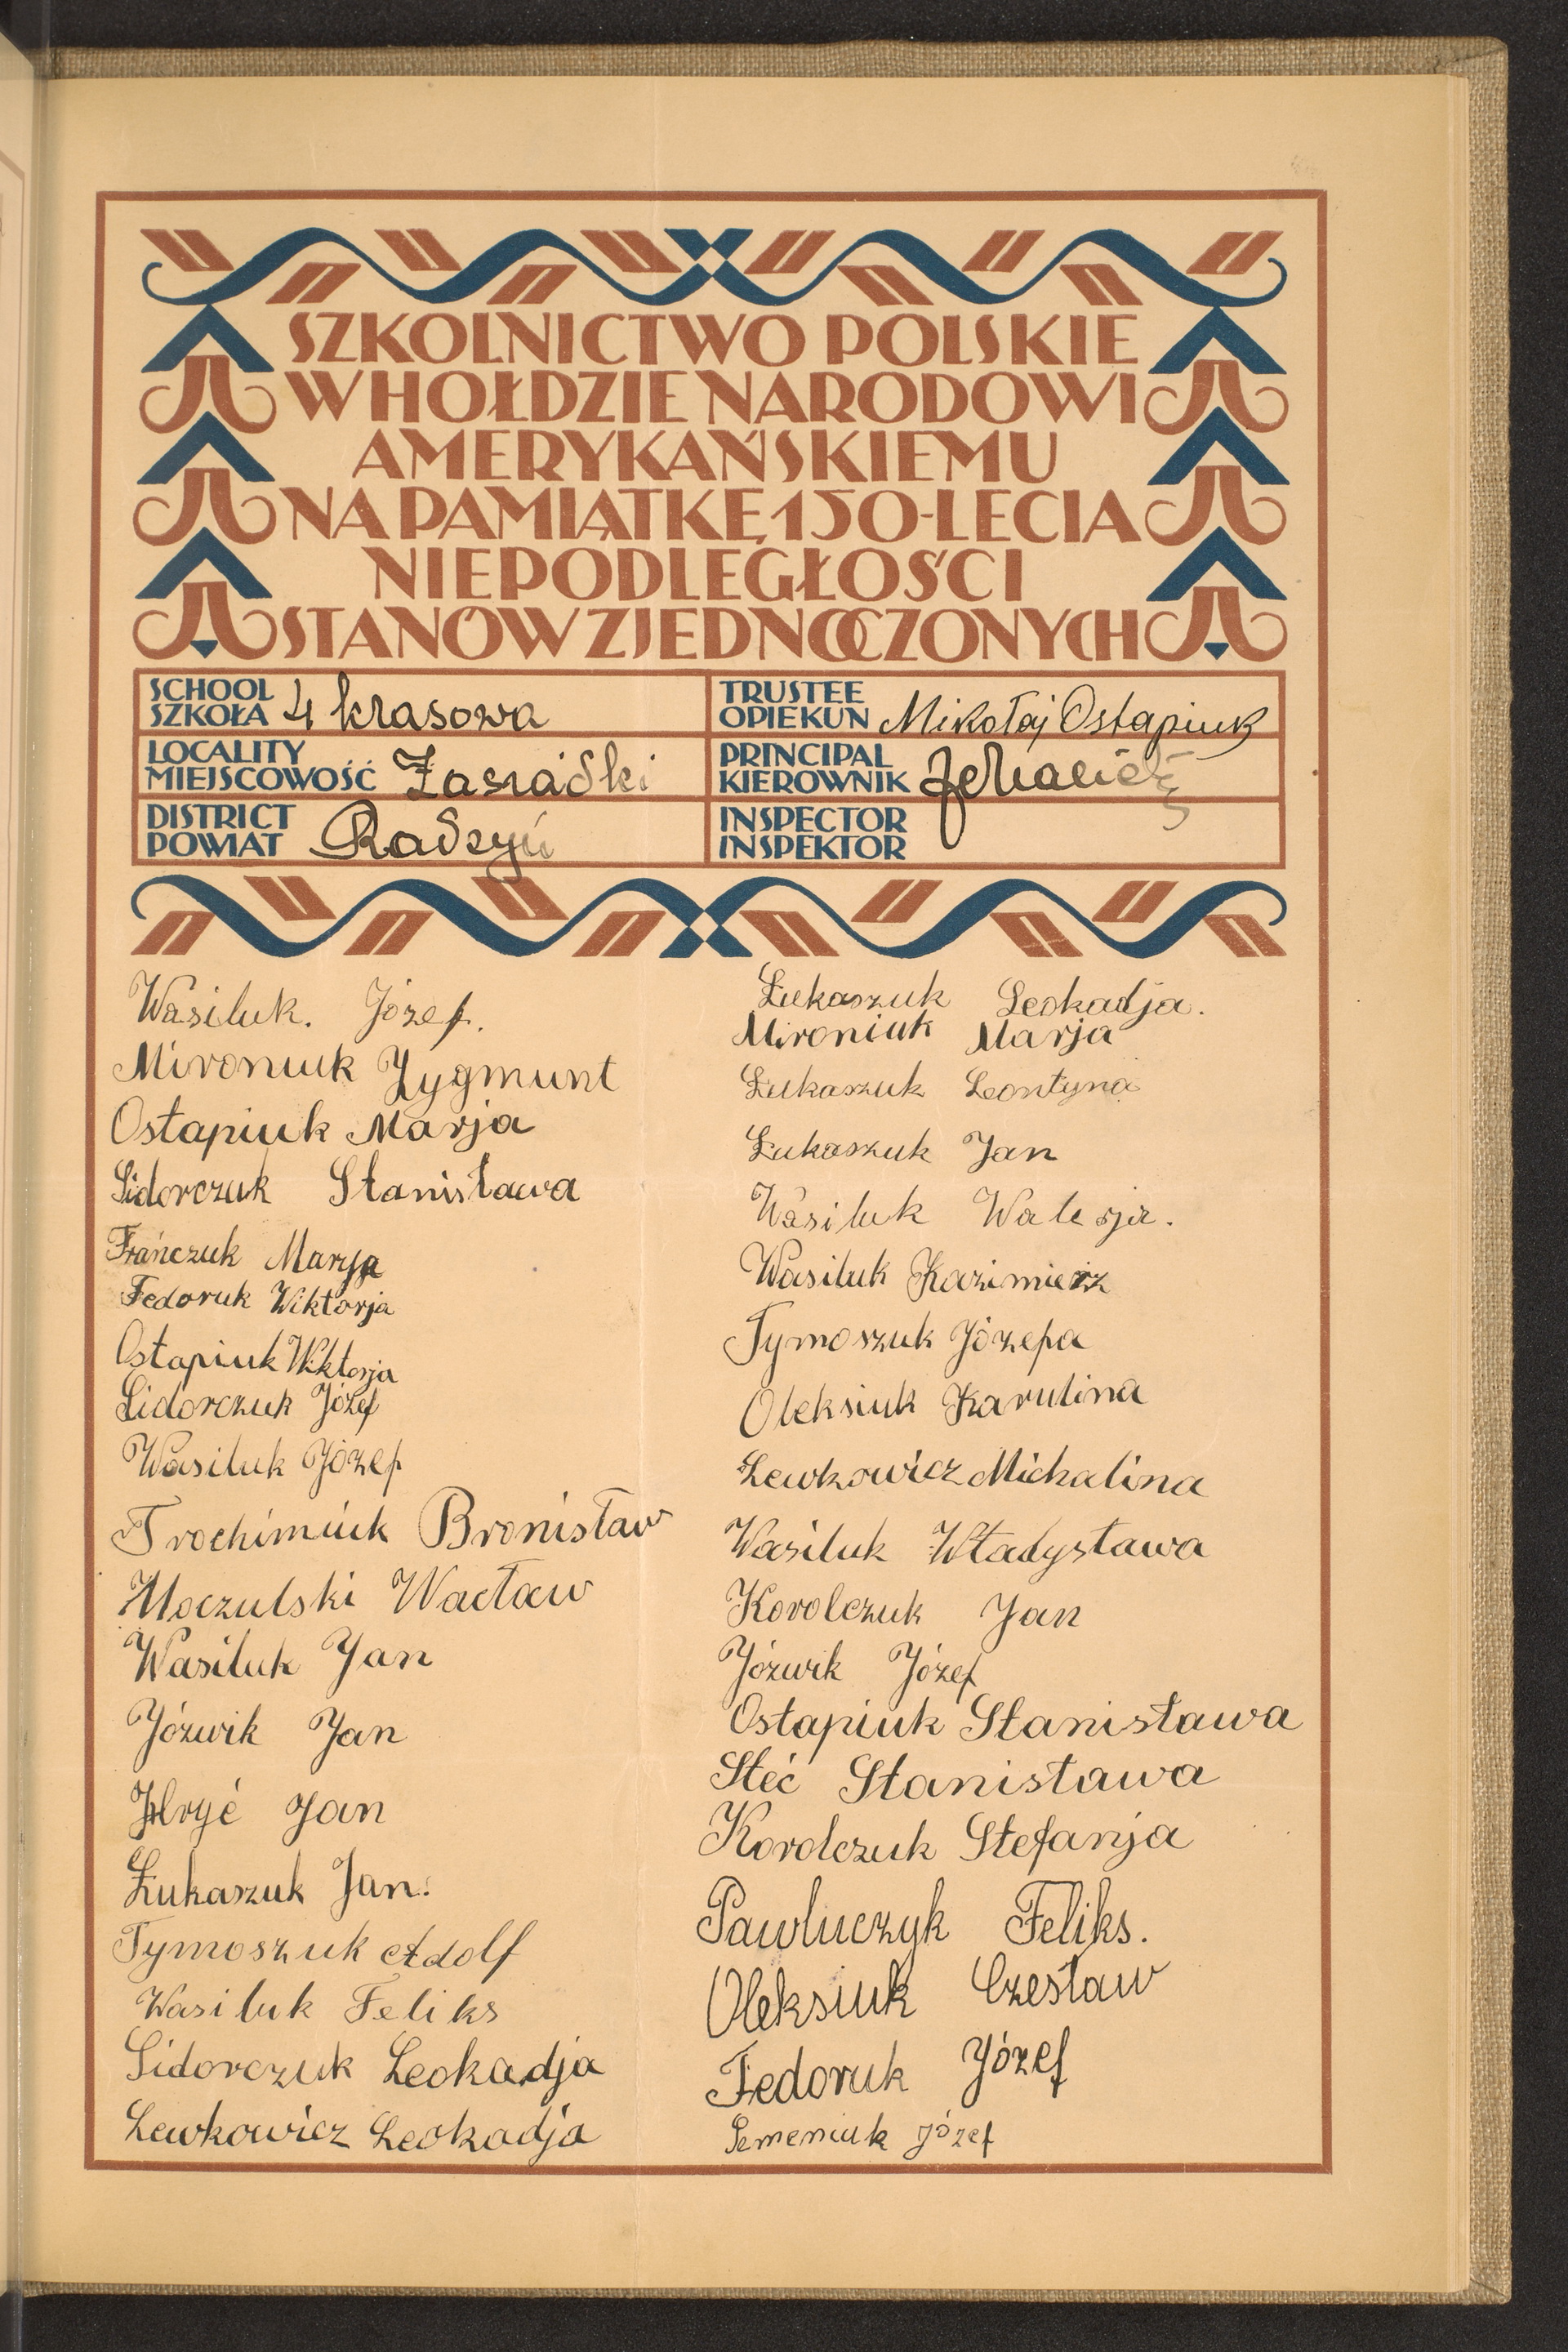 SZKOLNICTWO POLSKIE
W HOŁDZIE NARODOWI
AMERYKAŃSKIEMU
NA PAMIĄTKĘ 150-LECIA
NIEPODLEGŁOŚCI
STANÓW ZJEDNOCZONYCH
SCHOOL
SZKOŁA 4 klasowa
TRUSTEE
OPIEKUN Mikołaj Ostapiuk
LOCALITY
MIEJSCOWOŚĆ Zasiadki
PRINCIPAL
KIEROWNIK
DISTRICT
POWIAT Radzyń
INSPECTOR
INSPEKTOR
Wasiluk. Józef.
Mironiuk Zygmunt
Ostapiuk Marja
Sidorczuk Stanisława
Frańczuk Maryja
Fedoruk Wiktorja
Ostapiuk Wiktorja
Sidorczuk Józef
Wasiluk Józef
Trochimiuk Bronisław
Moczulski Wacław
Wasiluk Jan
Józwik Jan
Hryć Jan
Łukaszuk Jan.
Tymoszuk Adolf
Wasiluk Feliks
Sidorczuk Leokadja
Lewkowicz Leokadja
Łukaszuk Leokadja.
Mironiuk Marja
Łukaszuk Leontyna
Łukaszuk Jan
Wasiluk Walerja.
Wasiluk Kazimierz
Tymoszuk Józefa
Oleksiuk Karulina
Lewkowicz Michalina
Wasiluk Władysława
Korolczuk Jan
Józwik Józef
Ostapiuk Stanisława
Steć Stanisława
Korolczuk Stefanja
Pawluczyk Feliks.
Oleksiuk Czesław
Fedoruk Józef
Semeniuk Józef